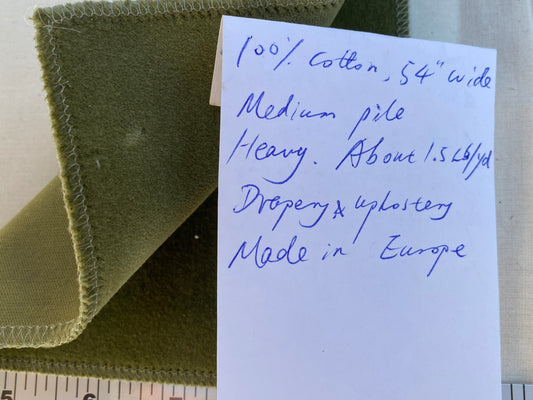 100% Cotton, 54" wide
Medium pile
Heavy. About 1.5 Lb/yd
Drapery & upholstery
Made in Europe
5 6